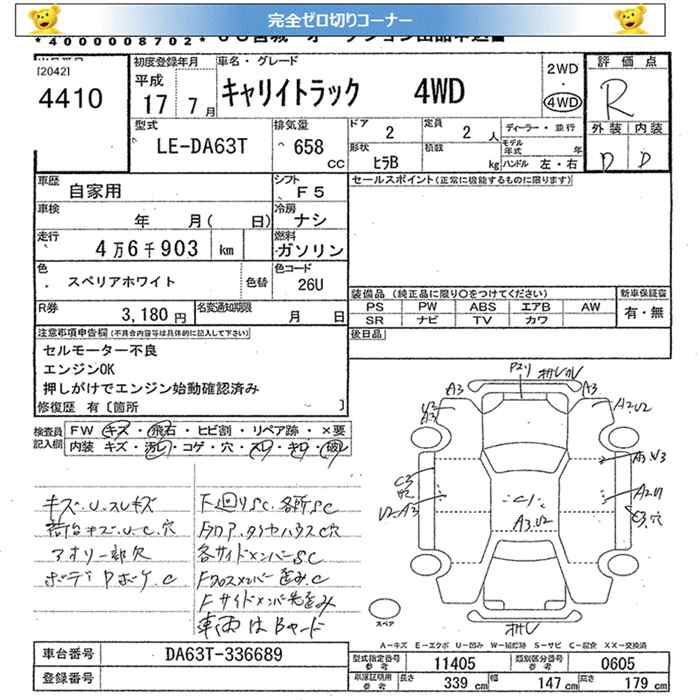 完全ゼロ切りコーナー
*4000008702*
[2042]
4410
初度登録年月
平成
17 7月
車名・グレード
キャリイトラック 4WD
2WD
・
4WD
評価点
R
外装 内装
D D
型式
LE-DA63T
排気量
658
CC
ドア
2
定員
2 人
ディーラー・並行
モデル
年式 年
形状
ヒラB
積載
kg
ハンドル 左・右
車歴
自家用
シフト
F5
セールスポイント(正常に機能するものに限ります)
車検
年 月( 日)
冷房
ナシ
走行
4万6千903 km
燃料
ガソリン
色
スペリアホワイト
色替
色コード
26U
装備品 (純正品に限り○をつけてください)
PS PW ABS エアB AW
SR ナビ TV カワ
新車保証書
有・無
R券
3,180円
名変通知期限
月 日
後日品
注意事項申告欄(不具合内容等は具体的に記入して下さい)
セルモーター不良
エンジンOK
押しがけでエンジン始動確認済み
修復歴 有[箇所 ]
検査員
記入欄
FW キズ・飛石・ヒビ割・リペア跡・×要
内装 キズ・汚レ・コゲ・穴・スレ・キレ・破レ
A3
A3
A2.U2
C1
A3.U2
C3.穴
U2.A3
キズ.U.スレキズ
荷台キズ.U.C.穴
アオリ一部欠
下廻りSC.各所SC
各サイドメンバーSC
Fクロスメンバー歪み.C
Fサイドメンバー先歪み
車両はBヤード
スペア
A-キズ E-エクボ U-凹ミ W-補修跡 S-サビ C-腐食 XX-交換済
車台番号
DA63T-336689
登録番号
型式指定番号
参考
11405
類別区分番号
参考
0605
車庫証明用
参考
長さ
339 cm
幅
147 cm
高さ
179 cm